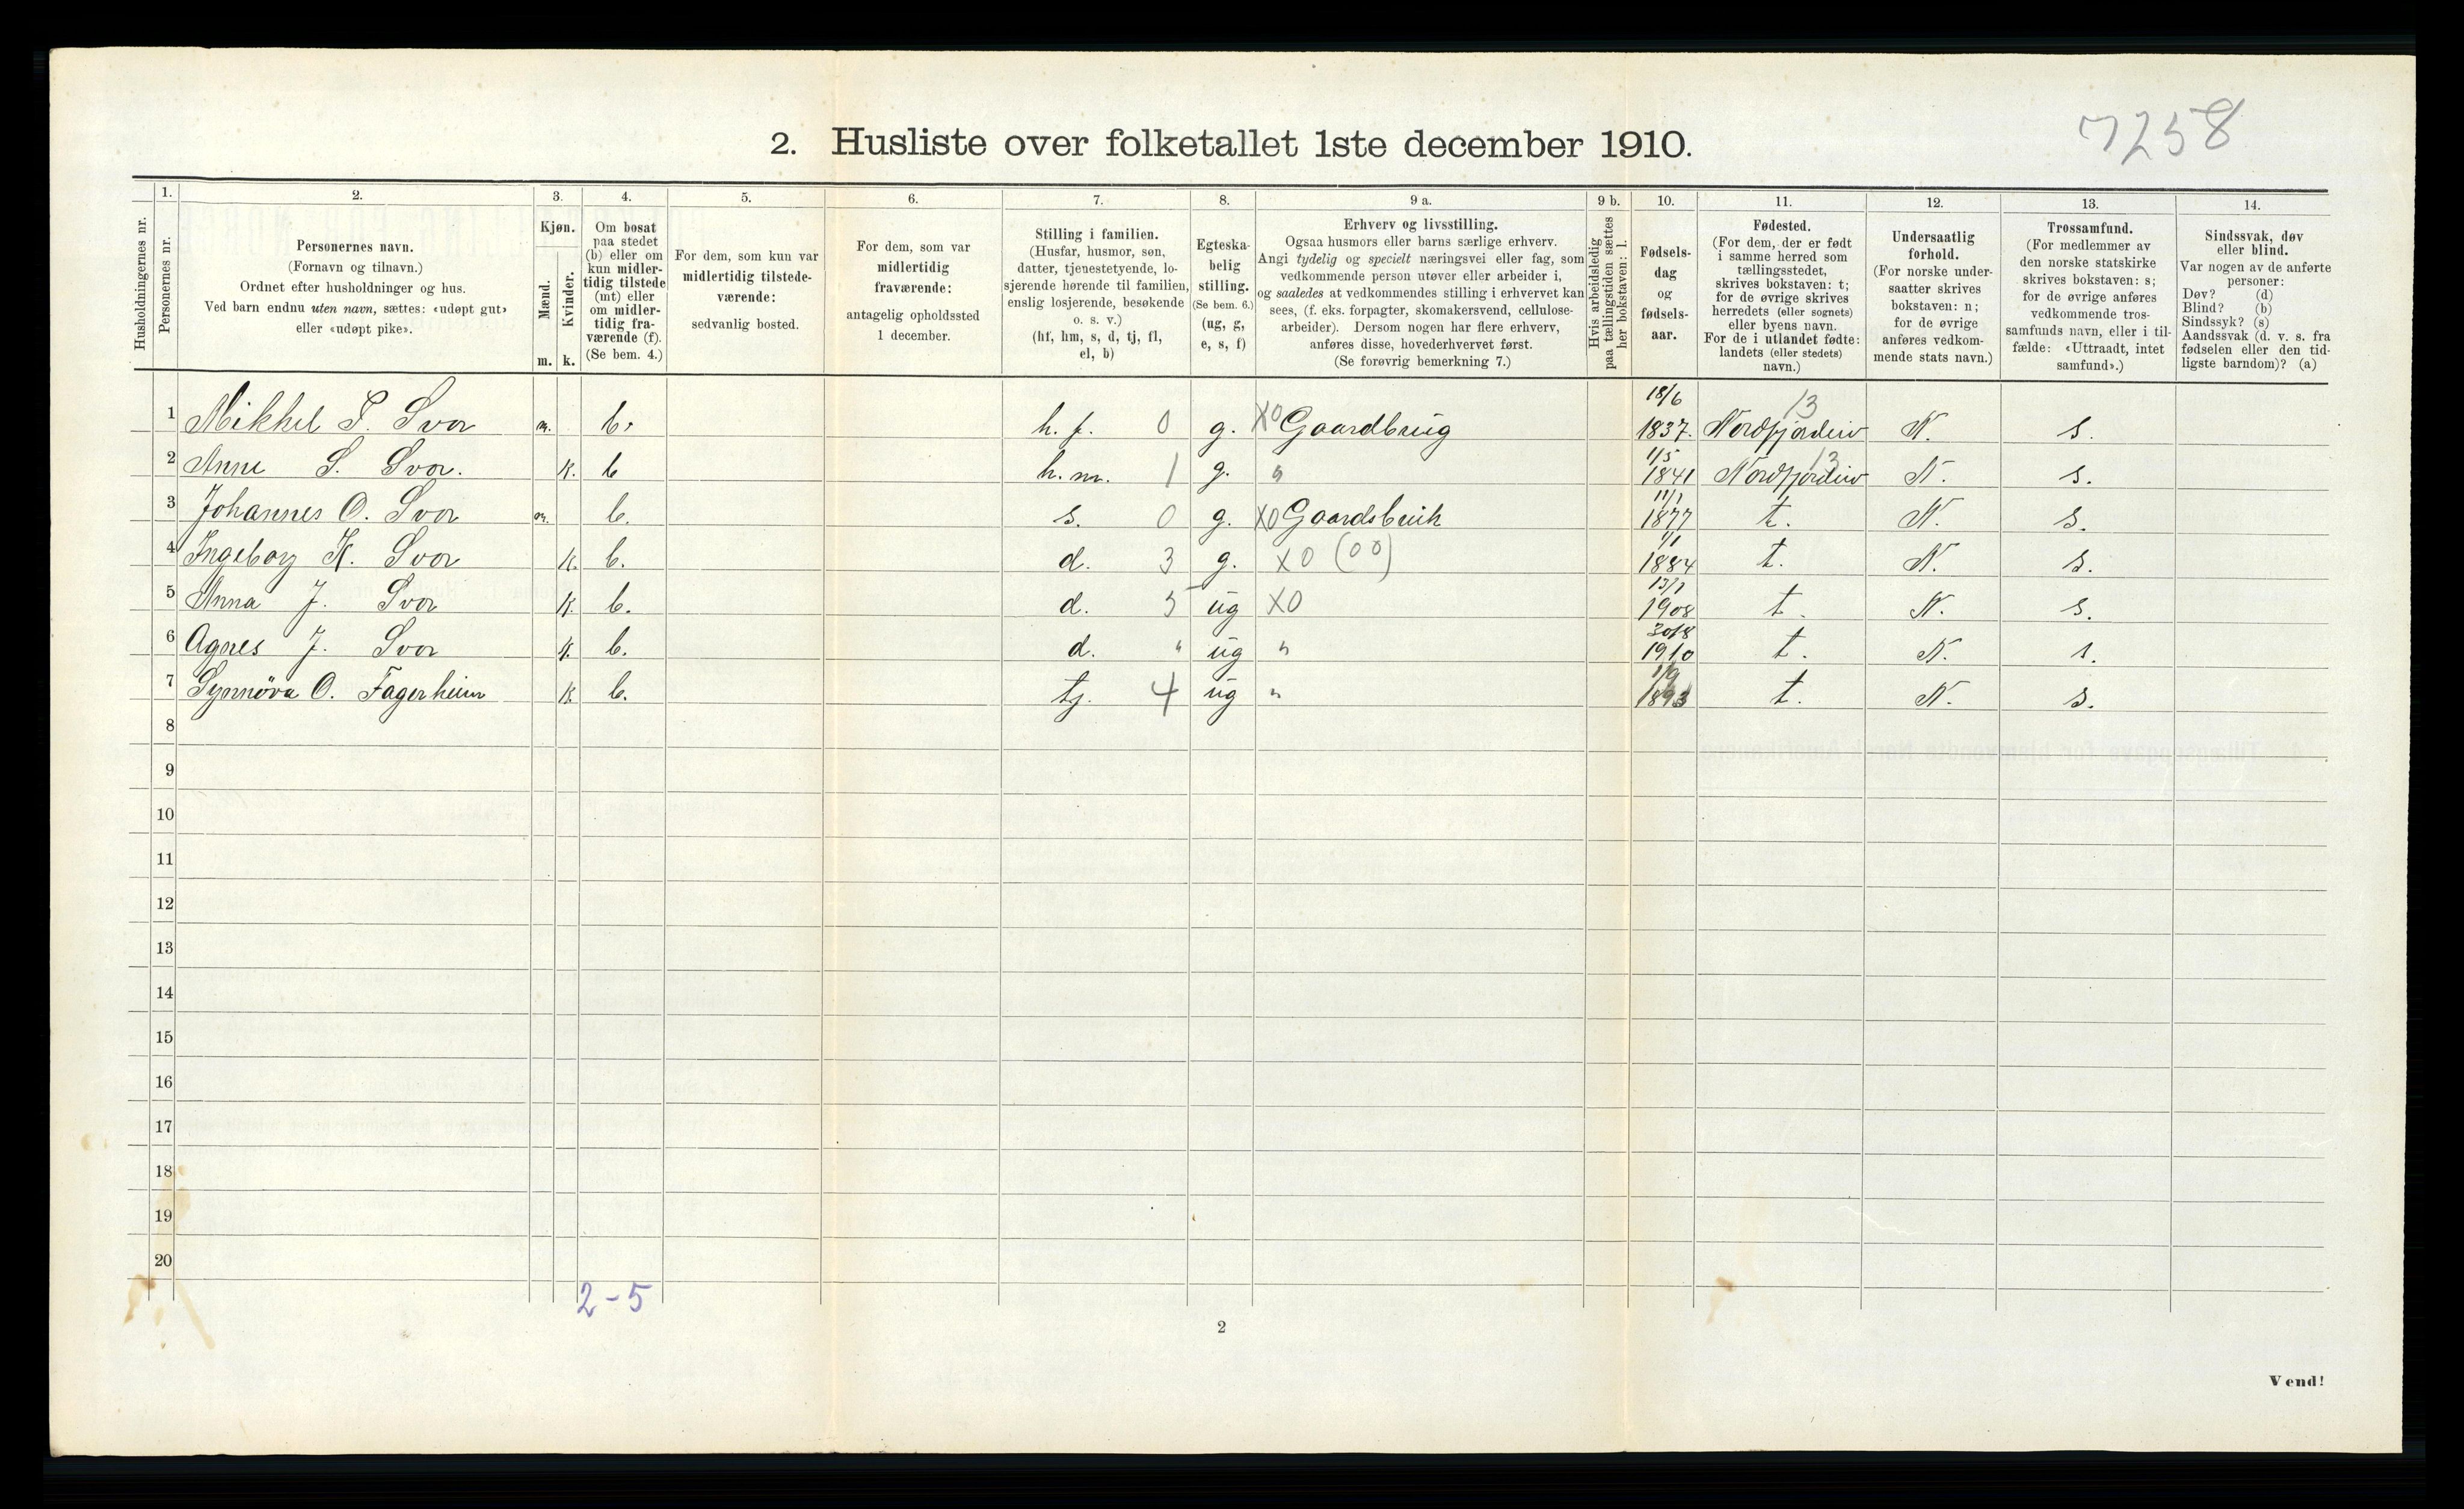 7258
2. Husliste over folketallet 1ste december 1910.
Husholdningernes nr.
1.
Personernes nr.
2.
Personernes navn.
(Fornavn og tilnavn.)
Ordnet efter husholdninger og hus.
Ved barn endnu uten navn, sættes: «udøpt gut»
eller «udøpt pike».
3.
Kjøn.
Mænd.
Kvinder.
m. k.
4.
Om bosat
paa stedet
(b) eller om
kun midler-
tidig tilstede
(mt) eller
om midler-
tidig fra-
værende (f).
(Se bem. 4.)
5.
For dem, som kun var
midlertidig tilstede-
værende:
sedvanlig bosted.
6.
For dem, som var
midlertidig
fraværende:
antagelig opholdssted
1 december.
7.
Stilling i familien.
(Husfar, husmor, søn,
datter, tjenestetyende, lo-
sjerende hørende til familien,
enslig losjerende, besøkende
o. s. v.)
(hf, hm, s, d, tj, fl,
el, b)
8.
Egteska-
belig
stilling.
(Se bem. 6.)
(ug, g,
e, s, f)
9 a.
Erhverv og livsstilling.
Ogsaa husmors eller barns særlige erhverv.
Angi tydelig og specielt næringsvei eller fag, som
vedkommende person utøver eller arbeider i,
og saaledes at vedkommendes stilling i erhvervet kan
sees, (f. eks. forpagter, skomakersvend, cellulose-
arbeider). Dersom nogen har flere erhverv,
anføres disse, hovederhvervet først.
(Se forøvrig bemerkning 7.)
9 b.
Hvis arbeidsledig
paa tællingstiden sættes
her bokstaven: l.
10.
Fødsels-
dag
og
fødsels-
aar.
11.
Fødested.
(For dem, der er født
i samme herred som
tællingsstedet,
skrives bokstaven: t;
for de øvrige skrives
herredets (eller sognets)
eller byens navn.
For de i utlandet fødte:
landets (eller stedets)
navn.)
12.
Undersaatlig
forhold.
(For norske under-
saatter skrives
bokstaven: n;
for de øvrige
anføres vedkom-
mende stats navn.)
13.
Trossamfund.
(For medlemmer av
den norske statskirke
skrives bokstaven: s;
for de øvrige anføres
vedkommende tros-
samfunds navn, eller i til-
fælde: «Uttraadt, intet
samfund».)
14.
Sindssvak, døv
eller blind.
Var nogen av de anførte
personer:
Døv? (d)
Blind? (b)
Sindssyk? (s)
Aandssvak (d. v. s. fra
fødselen eller den tid-
ligste barndom)? (a)
18/6 13
1 Mikkel P. Svor m. b. h. f. 0 g. X0 Gaardbrug 1837. Nordfjordeid N. s.
1/5 13
2 Anne S. Svor. k. b h. m. 1 g. " 1841 Nordfjordeid N. s.
3 Johannes O. Svor m. b. s. 0 g. X0 Gaardsbruk 1877 t. N. s.
1/1
4 Ingeborg K. Svor k. b. d. 3 g. X0 (00) 1884 t. N. s.
5 Anna J. Svor k. b. d. 5 ug X0 1908 t. N. s.
30/8
6 Agnes J. Svor k. b. d. " ug " 1910 t. N. s.
1/9
7 Synnöva O. Fagerheim k. b. tj. 4 ug " 1893 t. N. s.
8
9
10
11
12
13
14
15
16
17
18
19
20
2-5
2
Vend!